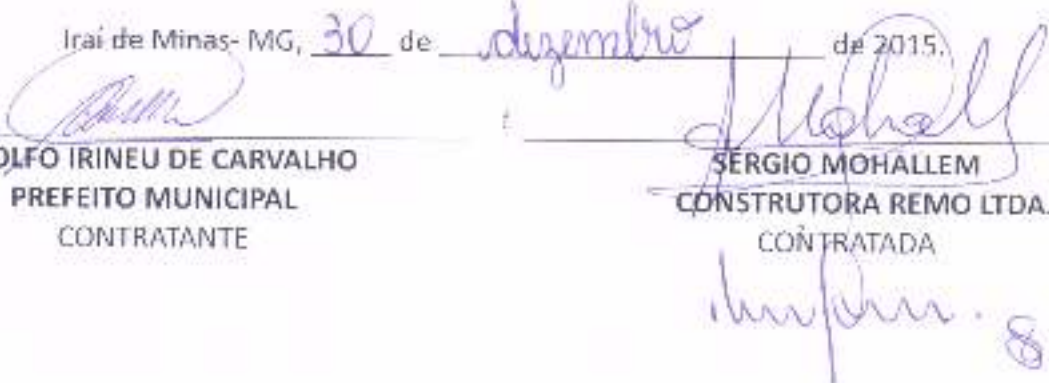 Iraí de Minas- MG, 30 de dezembro de 2015.
OLFO IRINEU DE CARVALHO
PREFEITO MUNICIPAL
CONTRATANTE
Mohall
SERGIO MOHALLEM
CONSTRUTORA REMO LTDA.
CONTRATADA
8